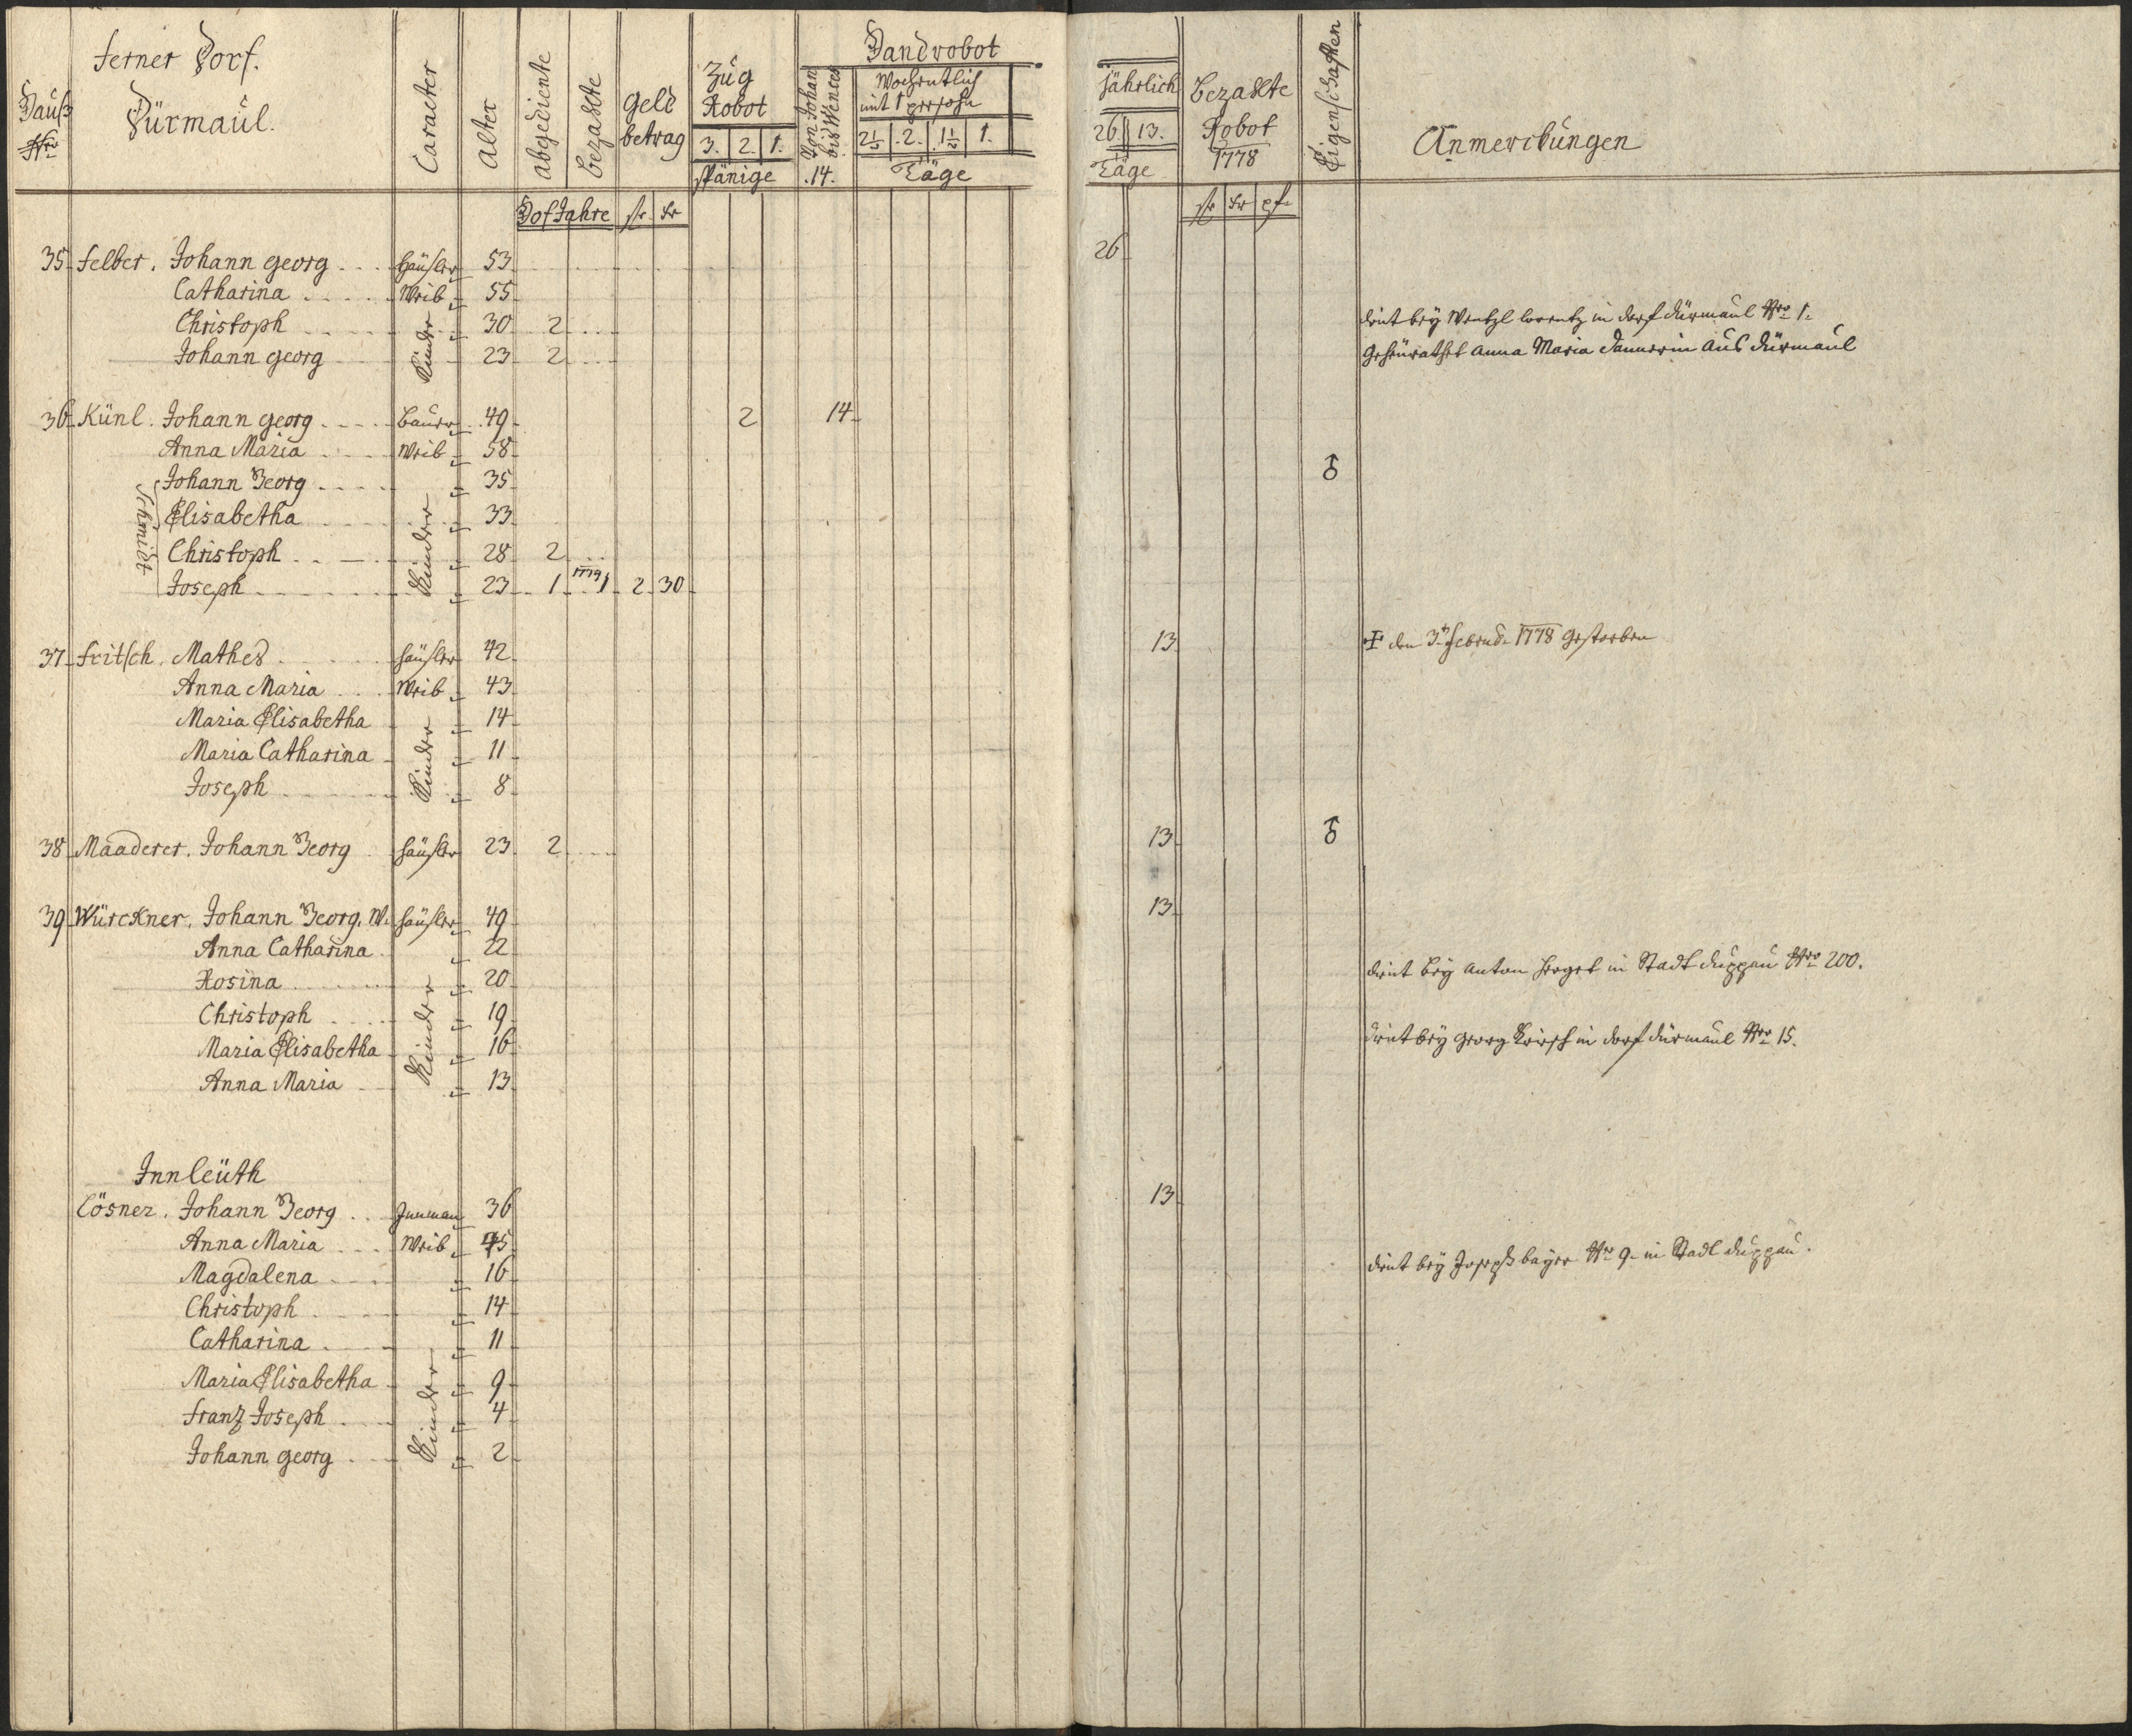 ferner Dorf.
Dürmaul.
Hauß
Nro
Caracter
Alter
abgediente
bezahlte
Hof Jahre
geld
betrag
fr kr
Zug
Robot
3. 2. 1.
spänige
Handrobot
Von Johan
bis Wences
.14.
Wochentlich
mit 1 persohn
2½ 2. 1½ 1.
Täge
jährlich
26. 13.
Täge
Bezahlte
Robot
1778
fr kr pf
Eigenschaften
Anmerckungen
35 Felber. Johann georg Häusler 53 26
Catharina Weib 55
Christoph 30 2 dient bey Wentzl lorentz in dorf dürmaul Nro 1.
Johann georg Kinder 23 2 Geheurathet Anna Maria Dannerin Aus dürmaul
36 Künl. Johann georg Bauer 49 2 14
Anna Maria Weib 58
Johann Georg 35 ♁
Elisabetha 33
Schmidt
Christoph 28 2
Joseph Kinder 23 1 1779 1 2 30
37 Fritsch. Mathes häusler 42 13 den 3t Februar 1778 Gestorben
Anna Maria Weib 43
Maria Elisabetha 14
Maria Catharina 11
Joseph Kinder 8
38 Maaderer. Johann Georg häusler 23 2 13 ♁
39 Würckner. Johann Georg. W. häusler 49 13
Anna Catharina 22
Rosina 20 dient bey Anton in Stadt duppau Nro 200.
Christoph 19
Maria Elisabetha Kinder 16 dient bey georg in dorf dürmaul Nro 15.
Anna Maria 13
Innleüth
Lösner. Johann Georg Innman 36 13
Anna Maria Weib 45
Magdalena 16 dient bey Joseph bayer Nro 9 in Stadt duppau.
Christoph 14
Catharina 11
Maria Elisabetha 9
Franz Joseph 4
Johann georg Kinder 2